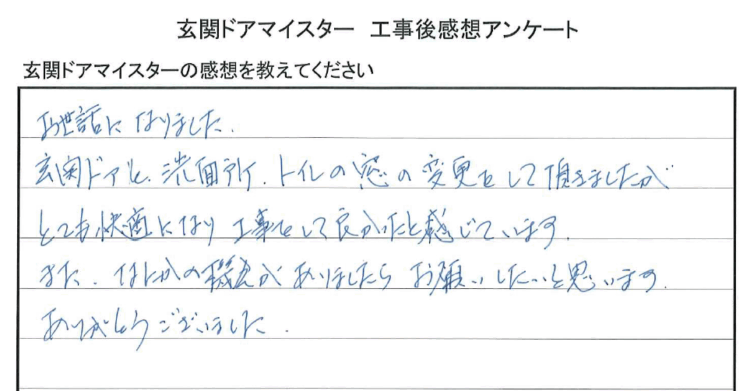 玄関ドアマイスター 工事後感想アンケート
玄関ドアマイスターの感想を教えてください
お世話になりました.
玄関ドアと、洗面所、トイレの窓の変更をして頂きましたが
とても快適になり工事をして良かったと感じています.
また、なにかの機会がありましたらお願いしたいと思います.
ありがとうございました.